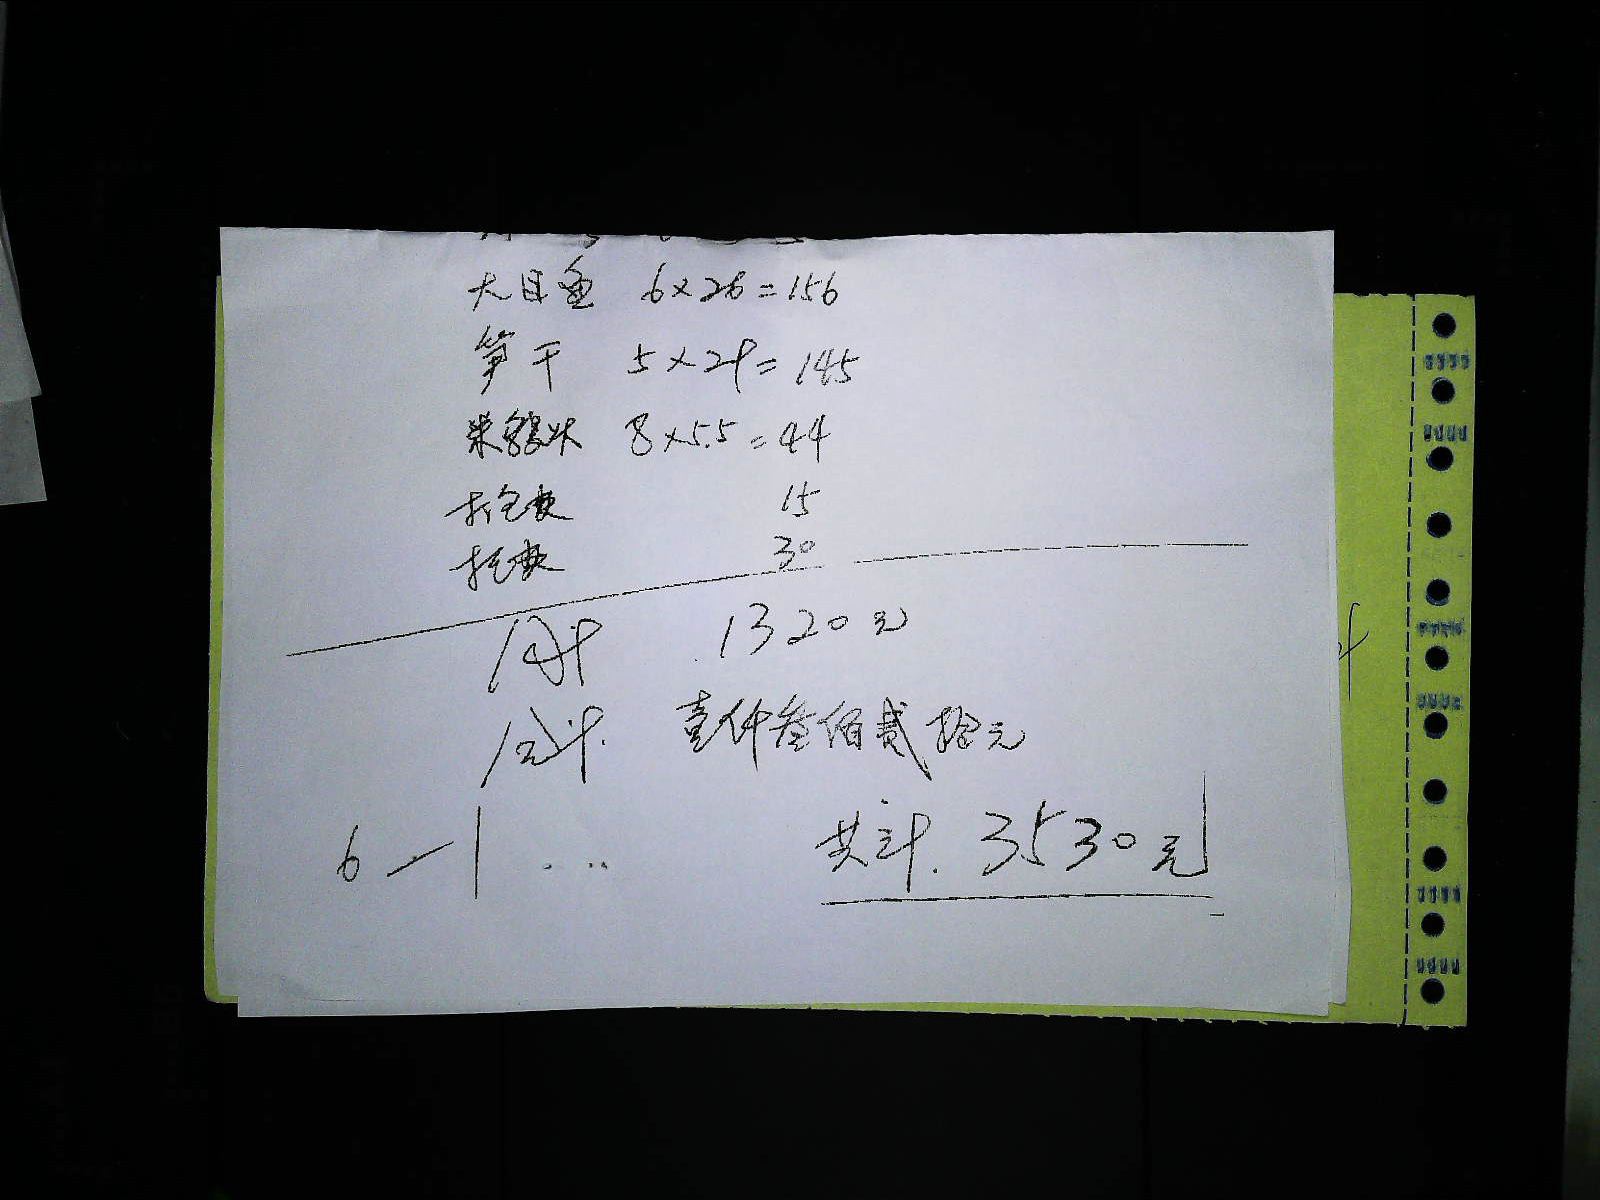 大目鱼 6×26=156
笋干 5×29=145
8×5.5=44
打包费 15
托费 30
合计 1320元
合计. 壹仟叁佰贰拾元
6—1 ... 共计. 3530元